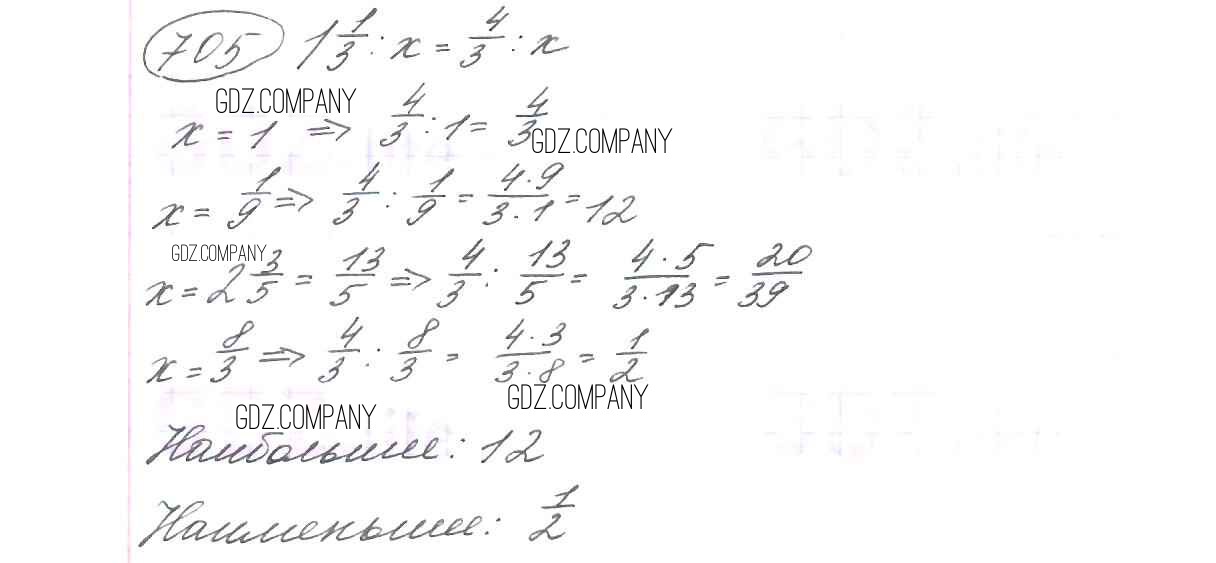 705 1 1/3 : x = 4/3 : x
GDZ.COMPANY
x = 1 => 4/3 : 1 = 4/3
GDZ.COMPANY
x = 1/9 => 4/3 : 1/9 = 4·9/3·1 = 12
GDZ.COMPANY
x = 2 3/5 = 13/5 => 4/3 : 13/5 = 4·5/3·13 = 20/39
x = 8/3 => 4/3 : 8/3 = 4·3/3·8 = 1/2
GDZ.COMPANY
GDZ.COMPANY
Наибольшее: 12
Наименьшее: 1/2